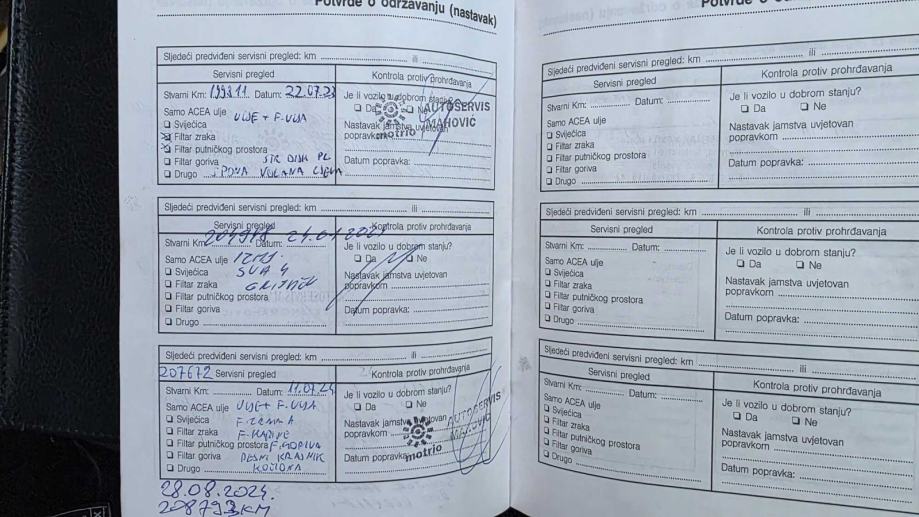 Potvrde o održavanju (nastavak)
Sljedeći predviđeni servisni pregled: km ili
Servisni pregled
Stvarni Km: 199811 Datum: 22.07.23
Samo ACEA ulje ULJE + F. ULJA
Svjećica
Filtar zraka
Filtar putničkog prostora
Filtar goriva
Drugo SPONA VOLANA
Kontrola protiv prohrđavanja
Je li vozilo u dobrom stanju?
Da Ne
Nastavak jamstva uvjetovan
popravkom
Datum popravka:
AUTOSERVIS
MAHOVIĆ
motrio
Sljedeći predviđeni servisni pregled: km ili
Servisni pregled
Stvarni Km: Datum:
Samo ACEA ulje IZMJ.
Svjećica SVA 4
Filtar zraka
Filtar putničkog prostora
Filtar goriva
Drugo
Kontrola protiv prohrđavanja
Je li vozilo u dobrom stanju?
Da Ne
Nastavak jamstva uvjetovan
popravkom
Datum popravka:
Sljedeći predviđeni servisni pregled: km ili
207672 Servisni pregled
Stvarni Km: Datum: 11.07.24
Samo ACEA ulje ULJE + F. ULJA
Svjećica F. ZRAKA
Filtar zraka F. KABINE
Filtar putničkog prostora F. GORIVA
Filtar goriva DESNI KRAJNIK
Drugo
Kontrola protiv prohrđavanja
Je li vozilo u dobrom stanju?
Da Ne
Nastavak jamstva uvjetovan
popravkom
Datum popravka:
AUTOSERVIS
MAHOVIĆ
motrio
28.08.2024.
208793 KM
Potvrde o
Sljedeći predviđeni servisni pregled: km ili
Servisni pregled
Stvarni Km: Datum:
Samo ACEA ulje
Svjećica
Filtar zraka
Filtar putničkog prostora
Filtar goriva
Drugo
Kontrola protiv prohrđavanja
Je li vozilo u dobrom stanju?
Da Ne
Nastavak jamstva uvjetovan
popravkom
Datum popravka:
Sljedeći predviđeni servisni pregled: km ili
Servisni pregled
Stvarni Km: Datum:
Samo ACEA ulje
Svjećica
Filtar zraka
Filtar putničkog prostora
Filtar goriva
Drugo
Kontrola protiv prohrđavanja
Je li vozilo u dobrom stanju?
Da Ne
Nastavak jamstva uvjetovan
popravkom
Datum popravka:
Sljedeći predviđeni servisni pregled: km ili
Servisni pregled
Stvarni Km: Datum:
Samo ACEA ulje
Svjećica
Filtar zraka
Filtar putničkog prostora
Filtar goriva
Drugo
Kontrola protiv prohrđavanja
Je li vozilo u dobrom stanju?
Da Ne
Nastavak jamstva uvjetovan
popravkom
Datum popravka: